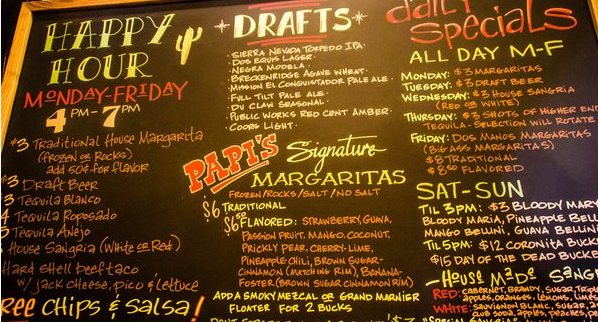 HAPPY
HOUR
MONDAY-FRIDAY
4 PM - 7 PM
$3 Traditional House Margarita
(FROZEN OR ROCKS)
add 50¢ for flavor
$3 Draft Beer
3 Tequila Blanco
4 Tequila Roposado
5 Tequila Añejo
House Sangria (White or Red)
Hard shell beef taco
w/ jack cheese, pico & lettuce
CHIPS & SALSA!
DRAFTS
· SIERRA NEVADA TORPEDO IPA
· DOS EQUIS LAGER
· NEGRA MODELA
· BRECKENRIDGE AGAVE WHEAT
· MISSION EL CONQUISTADOR PALE ALE
· FULL TILT PALE ALE
· DU CLAW SEASONAL
· PUBLIC WORKS RED CENT AMBER
· COORS LIGHT
PAPI'S Signature
MARGARITAS
FROZEN/ROCKS/SALT/NO SALT
$6 TRADITIONAL
$6.50 FLAVORED: STRAWBERRY, GUAVA,
PASSION FRUIT, MANGO, COCONUT,
PRICKLY PEAR, CHERRY-LIME,
PINEAPPLE CHILI, BROWN SUGAR-
CINNAMON (MATCHING RIM), BANANA-
FOSTER (BROWN SUGAR CINNAMON RIM)
ADD A SMOKY MEZCAL OR GRAND MARNIER
FLOATER FOR 2 BUCKS
daily
Specials
ALL DAY M-F
MONDAY: $3 MARGARITAS
TUESDAY: $3 DRAFT BEER
WEDNESDAY: $3 HOUSE SANGRIA
(RED OR WHITE)
THURSDAY: $3 SHOTS OF HIGHER END
TEQUILA - SELECTION WILL ROTATE
FRIDAY: DOS MANOS MARGARITAS
(BIG ASS MARGARITAS)
$8 TRADITIONAL
$8.50 FLAVORED
SAT-SUN
TIL 3PM: $3 BLOODY MARY
BLOODY MARIA, PINEAPPLE BELL
MANGO BELLINI, GUAVA BELLINI
TIL 5PM: $12 CORONITA BUCK
$15 DAY OF THE DEAD BUCK
HOUSE MADE SANG
RED: CABERNET, BRANDY, SUGAR, TRIPL
apples, oranges, lemons, limes
WHITE: SAUVIGNON BLANC, SUGAR,
club soda, apples, peaches,